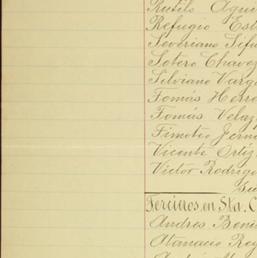 Rutilo Agui
Refugio Est
Severiano Sifu
Sotero Chavez
Silviano Varg
Tomás Herre
Tomás Velaz
Timoteo Jerni
Vicente Ortiz
Victor Rodrigu
Tercillos en Sta. C
Andres Beni
Atanacio Rey